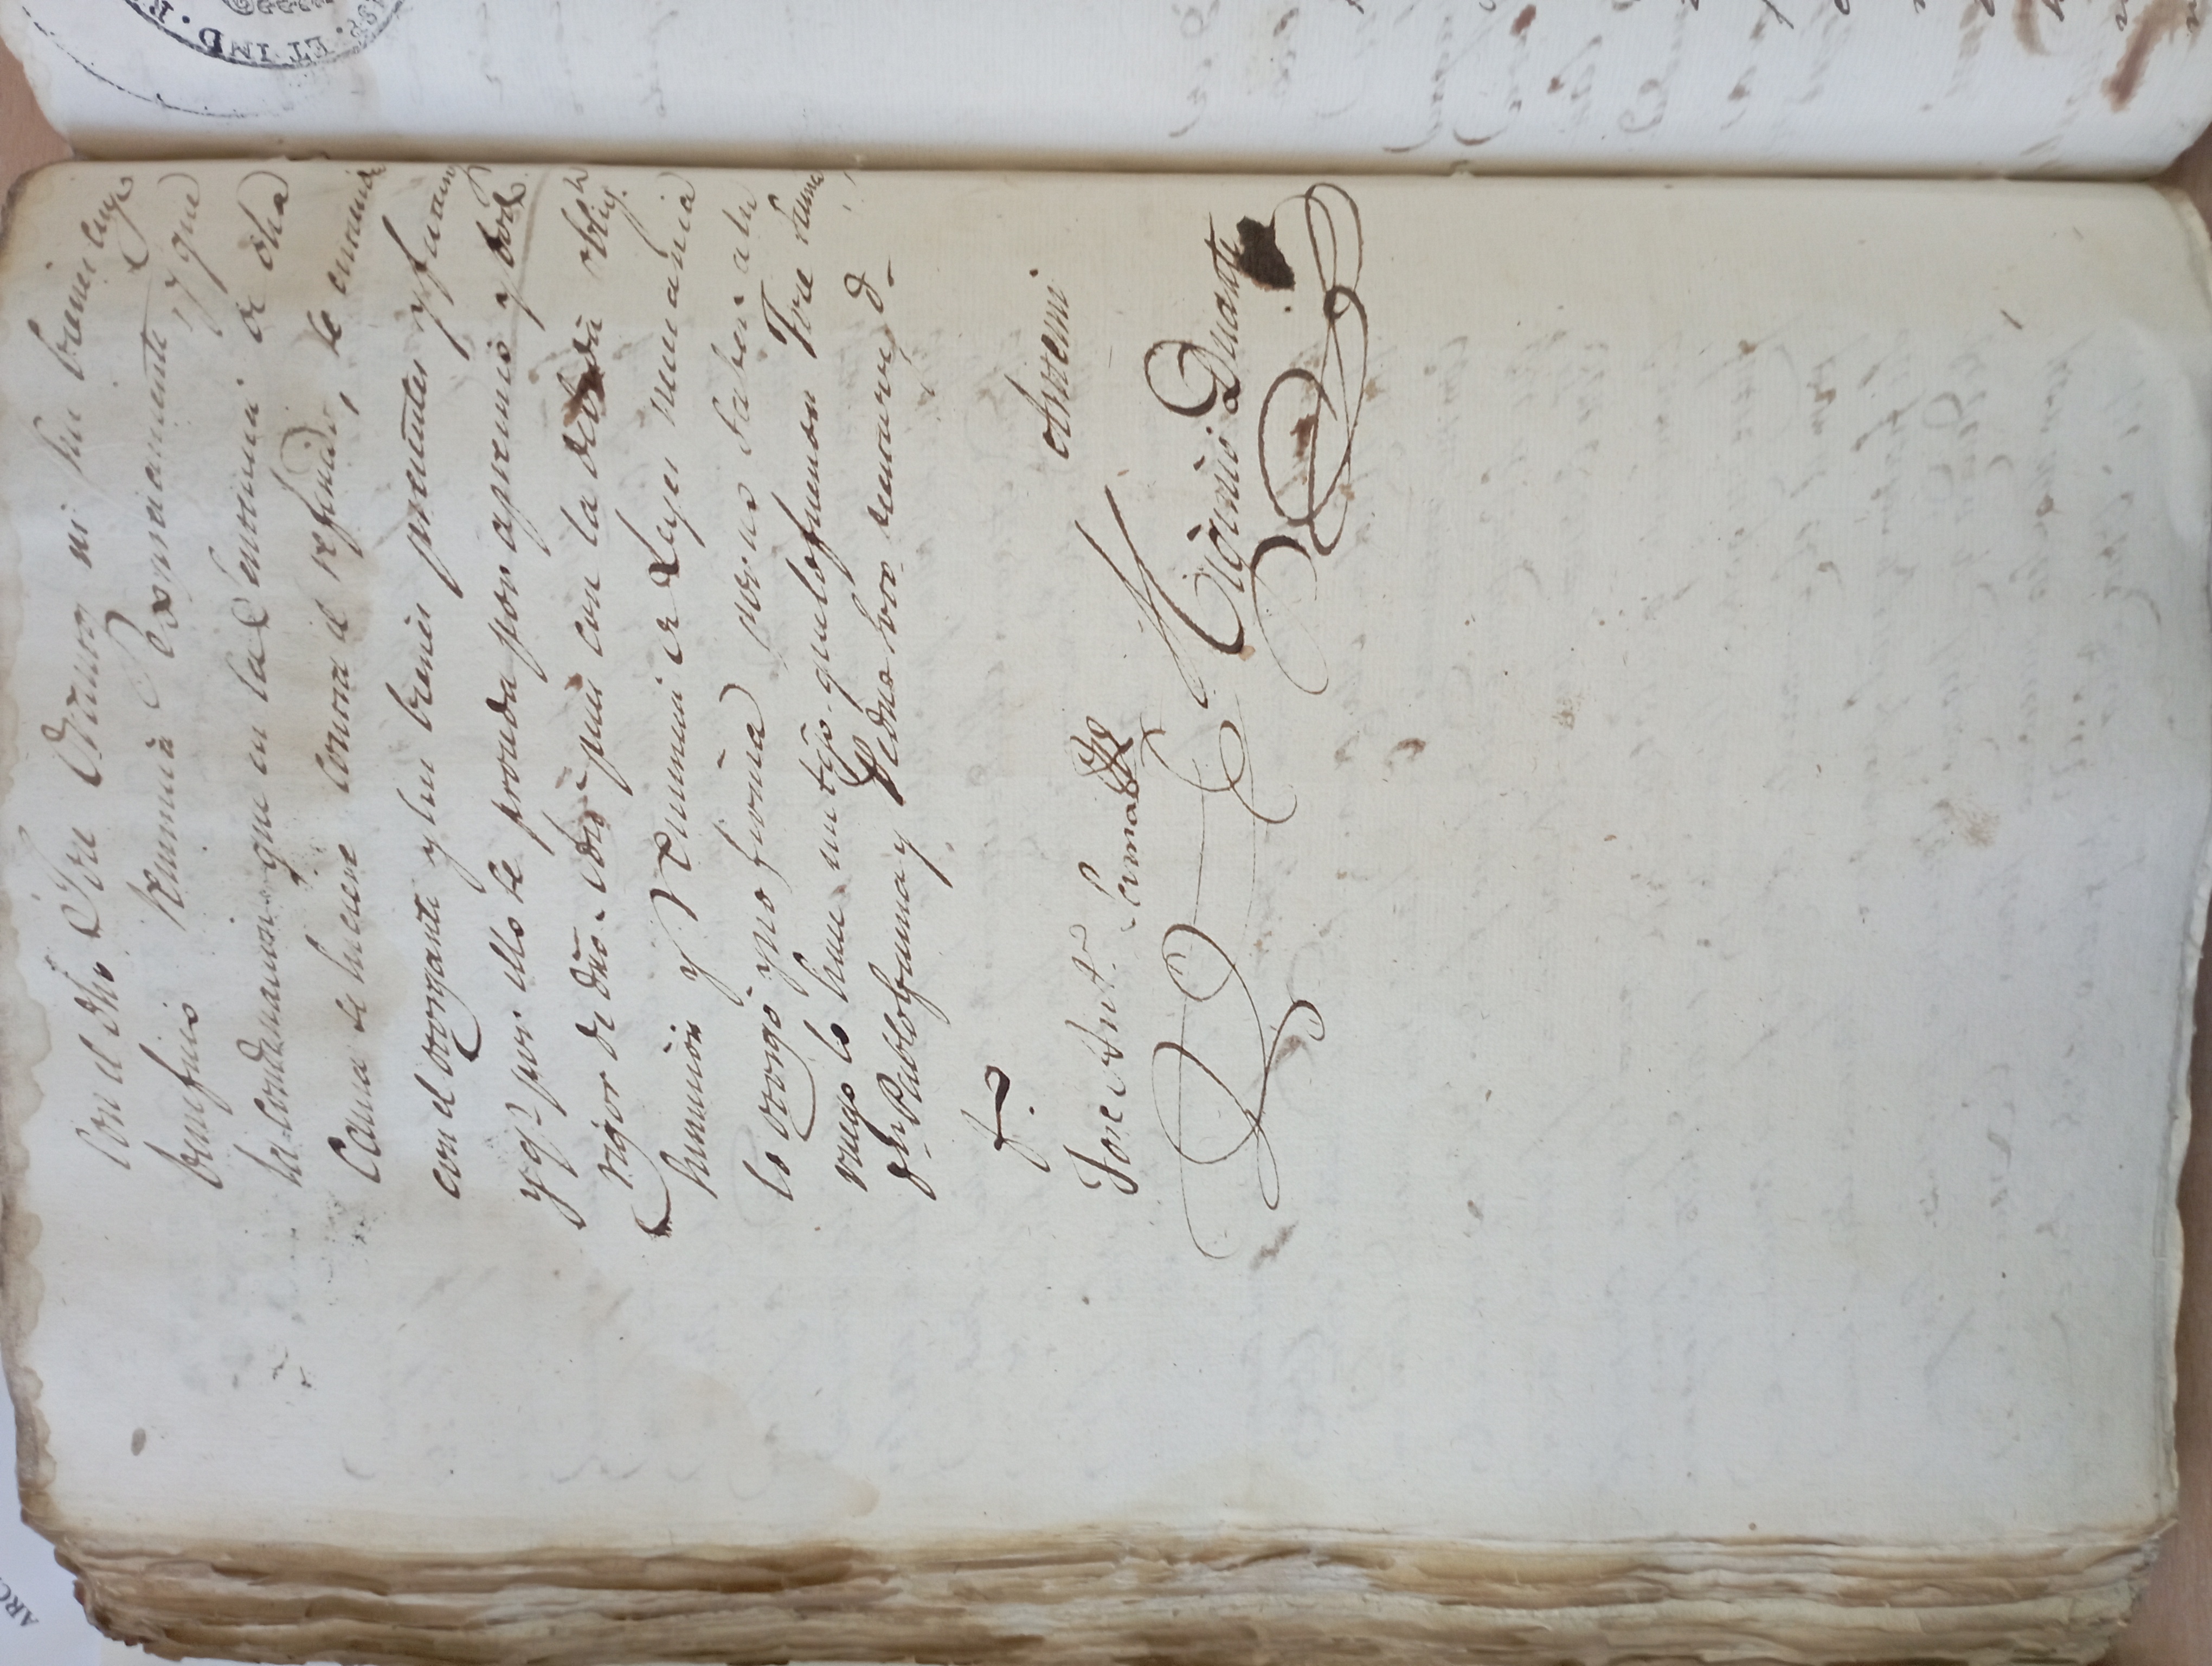 con el dho Jose Oramas ni sus bienes cuyo
beneficio renuncia expresamente, y que
la condenacion que en la Sentencia de dha
Causa se hiciere contra el referido, se entienda
con el otorgante y sus bienes presentes y futuros
y qe. por ello se proceda por apremio y todo
rigor de dro. Asi pues con la debida oblign.
sumision y renuncia de Leyes necesaria
lo otorgó y no firma por no saber a su
ruego lo hace un tgo. que lo fueron Jose
Dn. Pablo y Pedro Soto de
fe.
Antemi
Jose Anto. Lama
Higinio Duarte
ARC